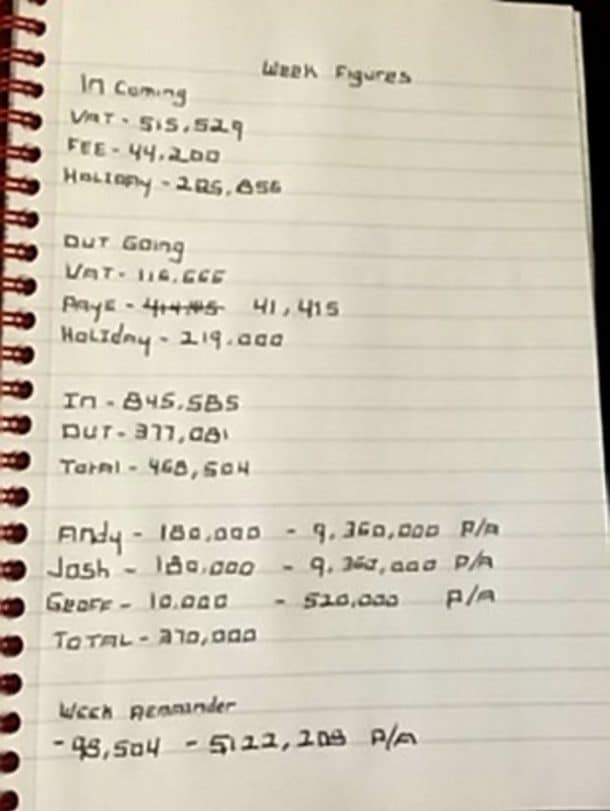 Week Figures
In Coming
VAT - 515,529
FEE - 44,200
HOLIDAY - 285,856
OUT Going
VAT - 116,666
PAYE - 41,415
HOLIDAY - 219,000
In - 845,585
OUT - 377,081
Total - 468,504
Andy - 180,000 - 9,360,000 P/A
Josh - 180,000 - 9,360,000 P/A
GEOFF - 10,000 - 520,000 P/A
TOTAL - 370,000
Week Remainder
- 98,504 - 5122,208 P/A